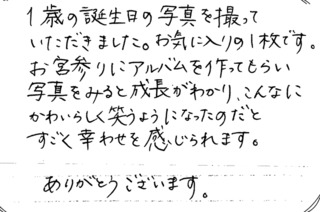 1歳の誕生日の写真を撮って
いただきました。お気に入りの1枚です。
お宮参りにアルバムを作ってもらい
写真をみると成長がわかり、こんなに
かわいらしく笑うようになったのだと
すごく幸わせを感じられます。
ありがとうございます。